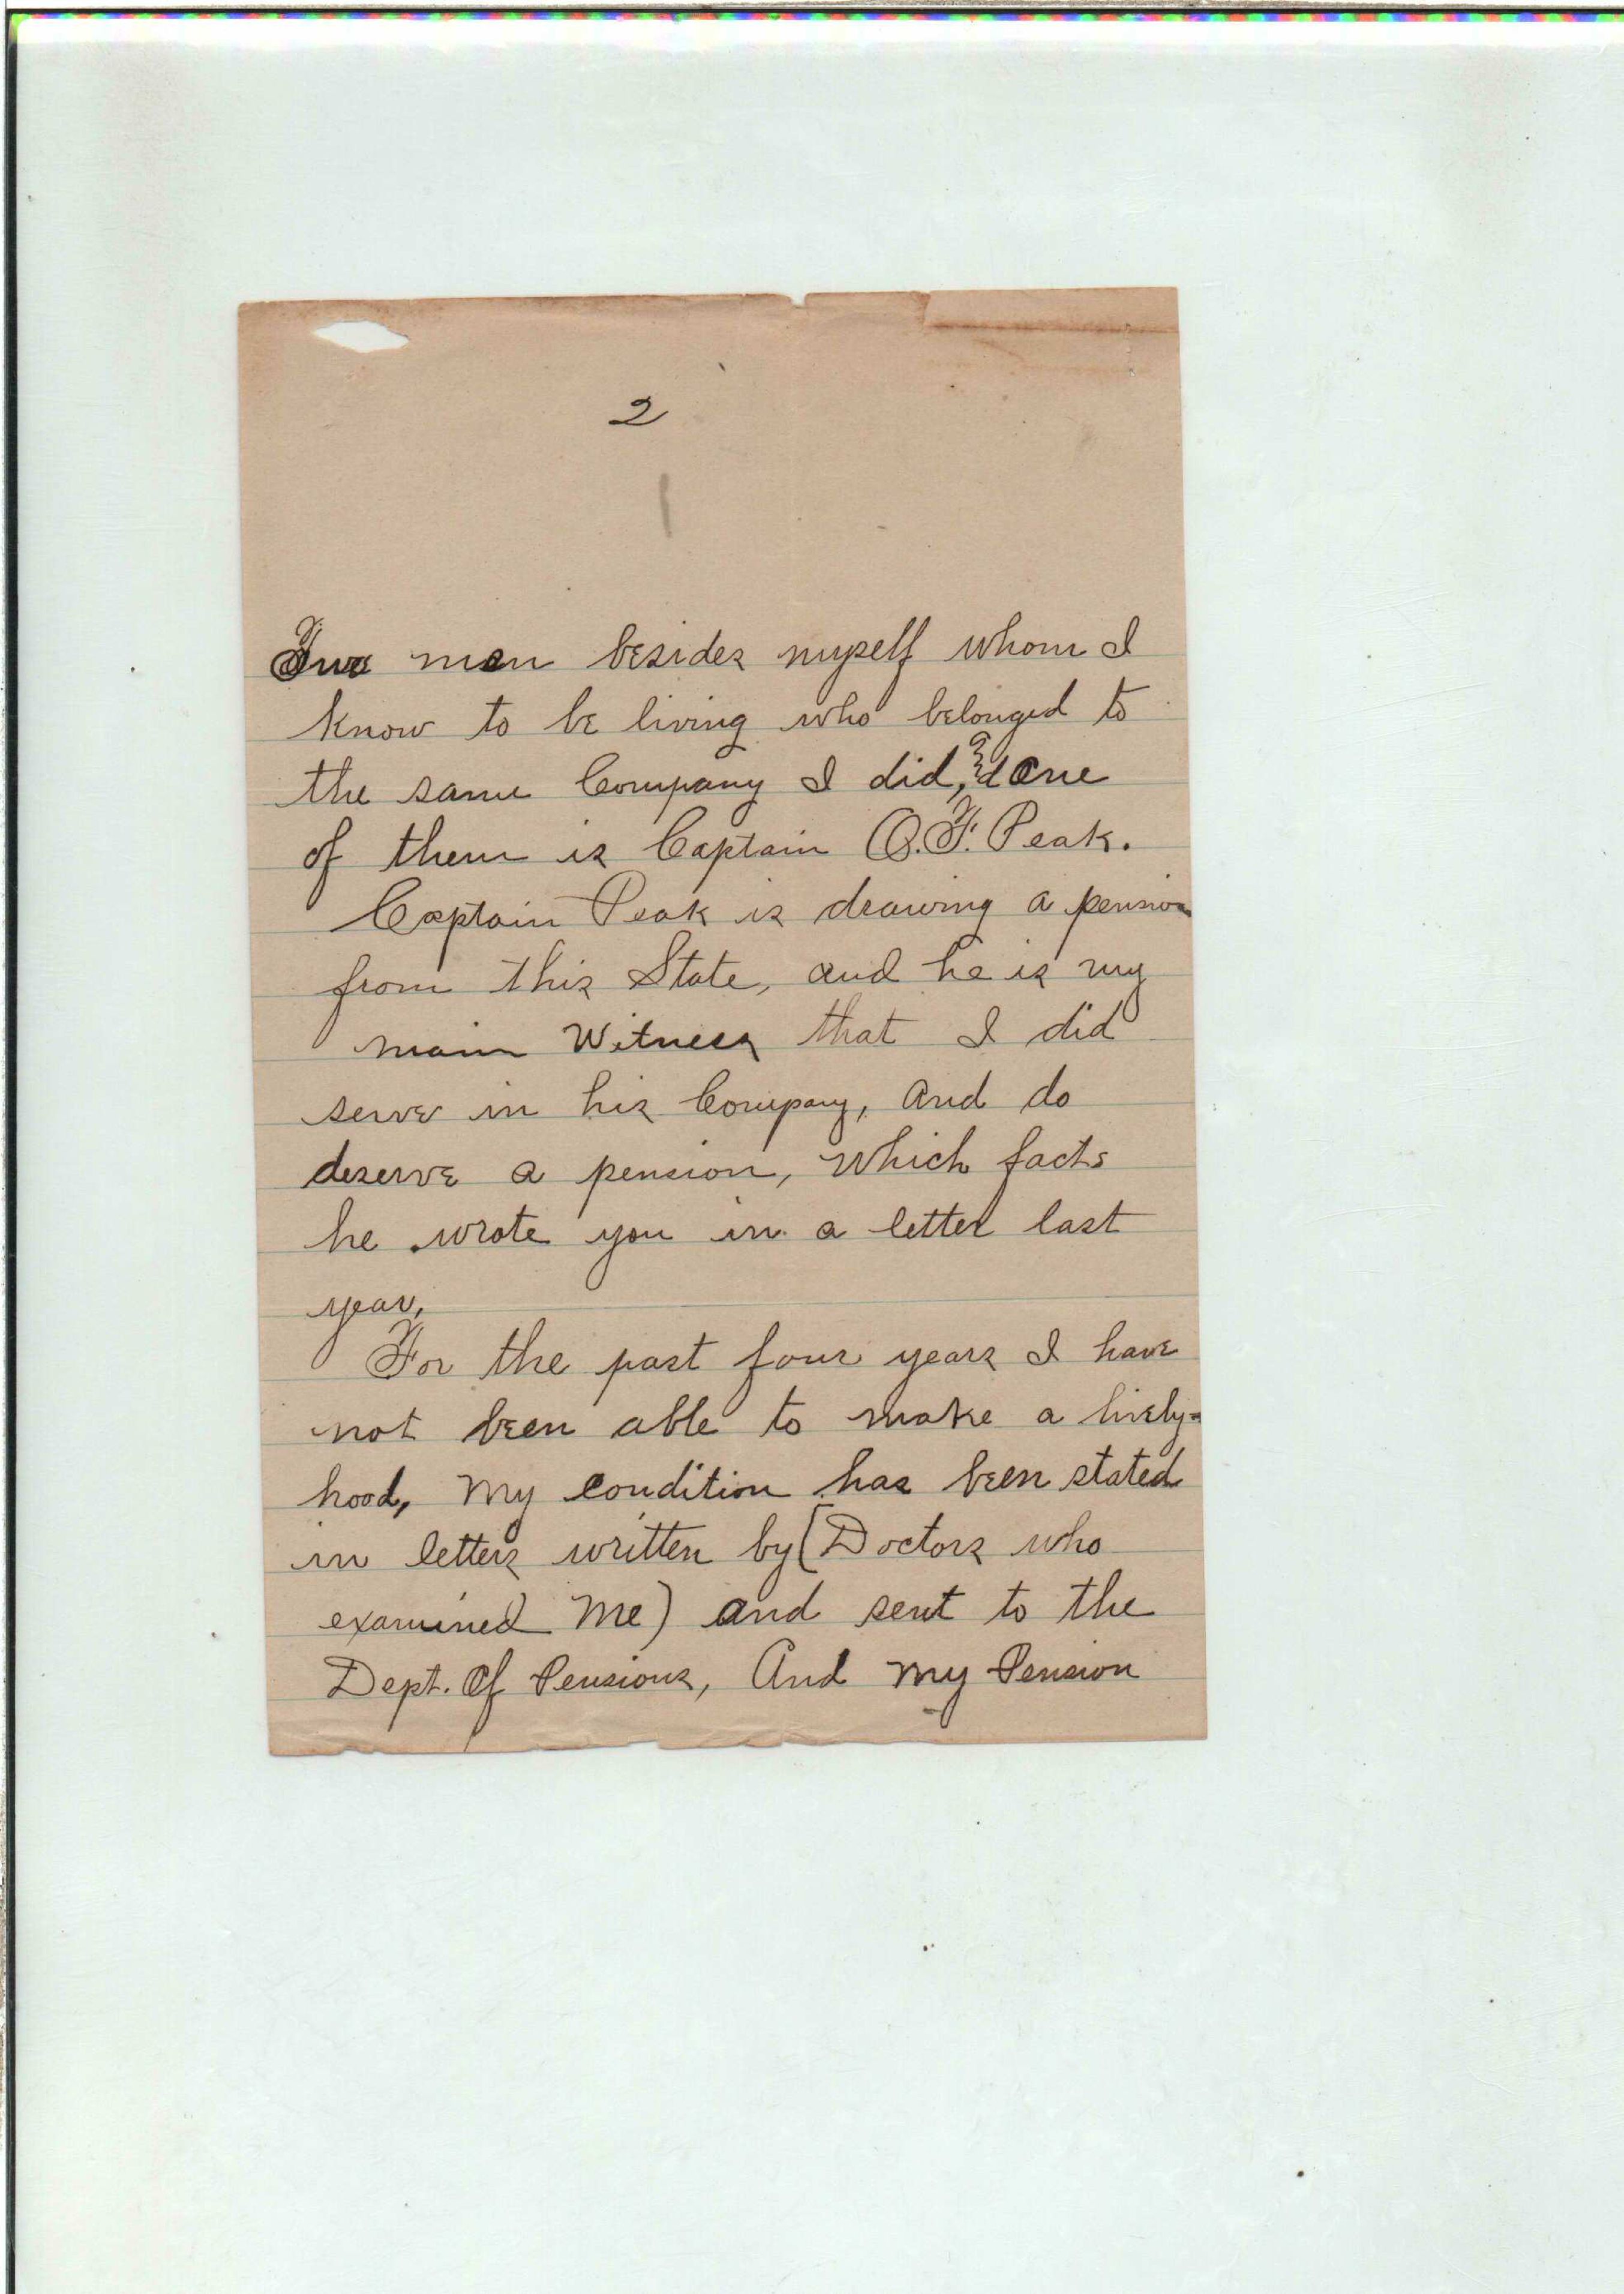 2
Two men besides myself whom I
know to be living who belonged to
the same Company I did, & one
of them is Captain Q.F. Peak.
Captain Peak is drawing a pension
from this State, and he is my
main Witness that I did
serve in his Company, and do
deserve a pension, which facts
he wrote you in a letter last
year,
For the past four years I have
not been able to make a lively=
hood, My condition has been stated
in letters written by (Doctors who
examined Me) and sent to the
Dept. Of Pensions, And My Pension